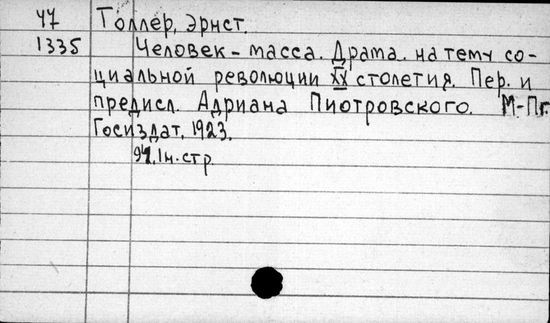 44 Толлер, Эрнст.
1335 Человек-масса. Драма на тему со-
циальной революции XX столетия. Пер. и
предисл. Адриана Пиотровского. М-Пг.
Госиздат, 1923.
94, 1 н. стр.